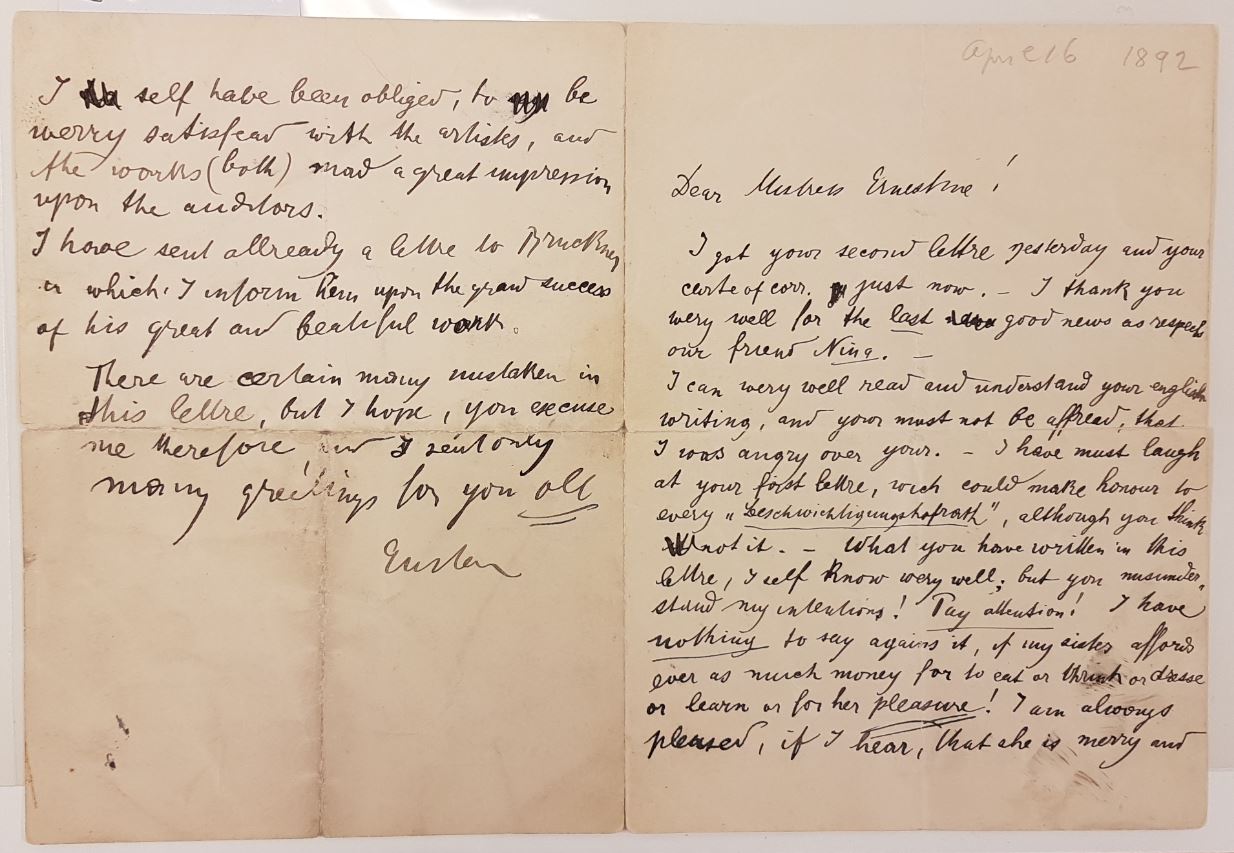 April 6 1892
Dear Mistress Ernestine!
I got your second lettre yesterday and your
carte of corr. just now. – I thank you
wery well for the last good news as respects
our friend Nina. –
I can wery well read and understand your english
writing, and your must not be affread, that
I was angry over your. – I have must laugh
at your first lettre, wich could make honour to
every „Beschwichtigungshofrath", although you think
not it. – What you have written in this
lettre, I self know wery well; but you misunder-
stand my intentions! Pay attention! I have
nothing to say against it, if my sister affords
ever as much money for to eat or thrink or dresse
or learn or for her pleasure! I am always
pleased, if I hear, that she is merry and
I self have been obliged, to be
werry satisfead with the artists, and
the works (both) mad a great impression
upon the auditors.
I have sent allready a lettre to Bruckner
in which I inform him upon the grand success
of his great and beatiful work.
There are certain many mistaken in
this lettre, but I hope, you excuse
me therefore and I sent only
many greetings for you all
Gustav